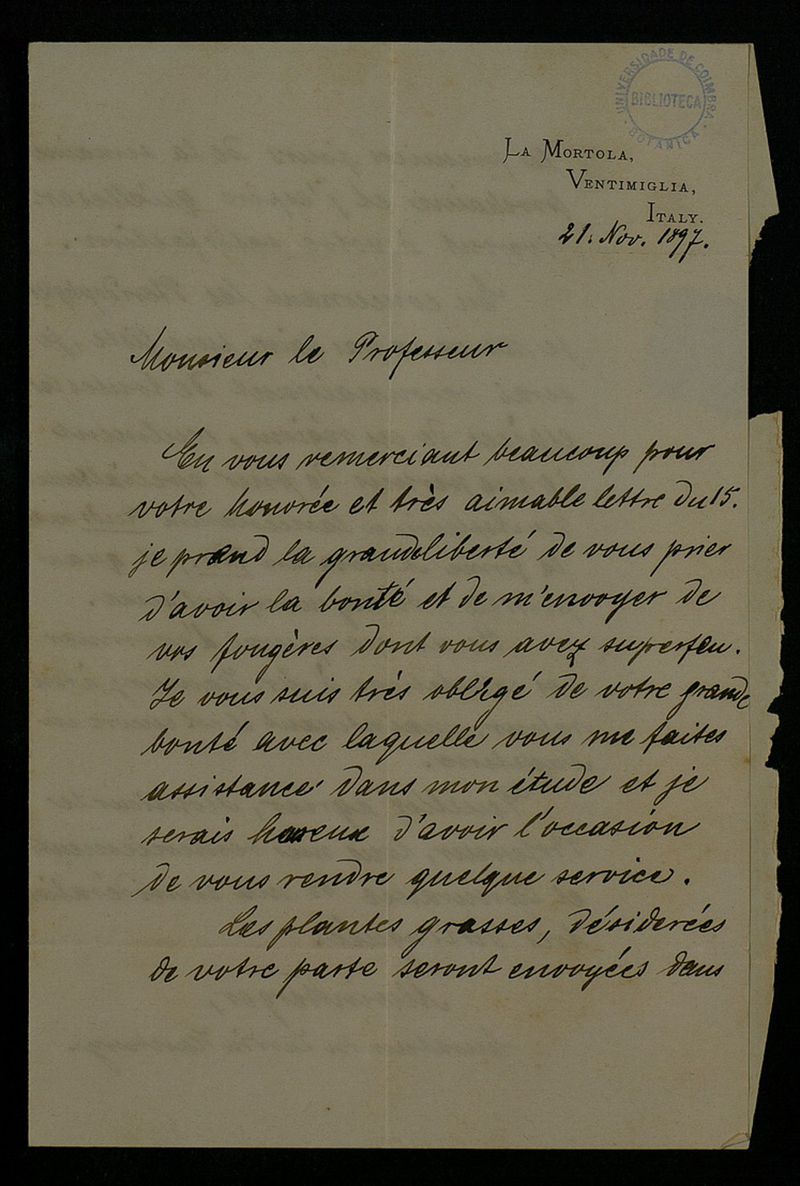 UNIVERSIDADE DE COIMBRA
BIBLIOTECA
BOTANICA
LA MORTOLA,
VENTIMIGLIA,
ITALY.
21. Nov. 1897.
Monsieur le Professeur
En vous remerciant beaucoup pour
votre honorée et très aimable lettre du 15.
je prend la grande liberté de vous prier
d'avoir la bonté et de m'envoyer de
vos fougères dont vous avez superfeu.
Je vous suis très obligé de votre grande
bonté avec laquelle vous me faites
assistance dans mon étude et je
serais d'avoir l'occasion
de vous rendre quelque service.
Les plantes grasses, désiderées
de votre parte seront envoyées dans